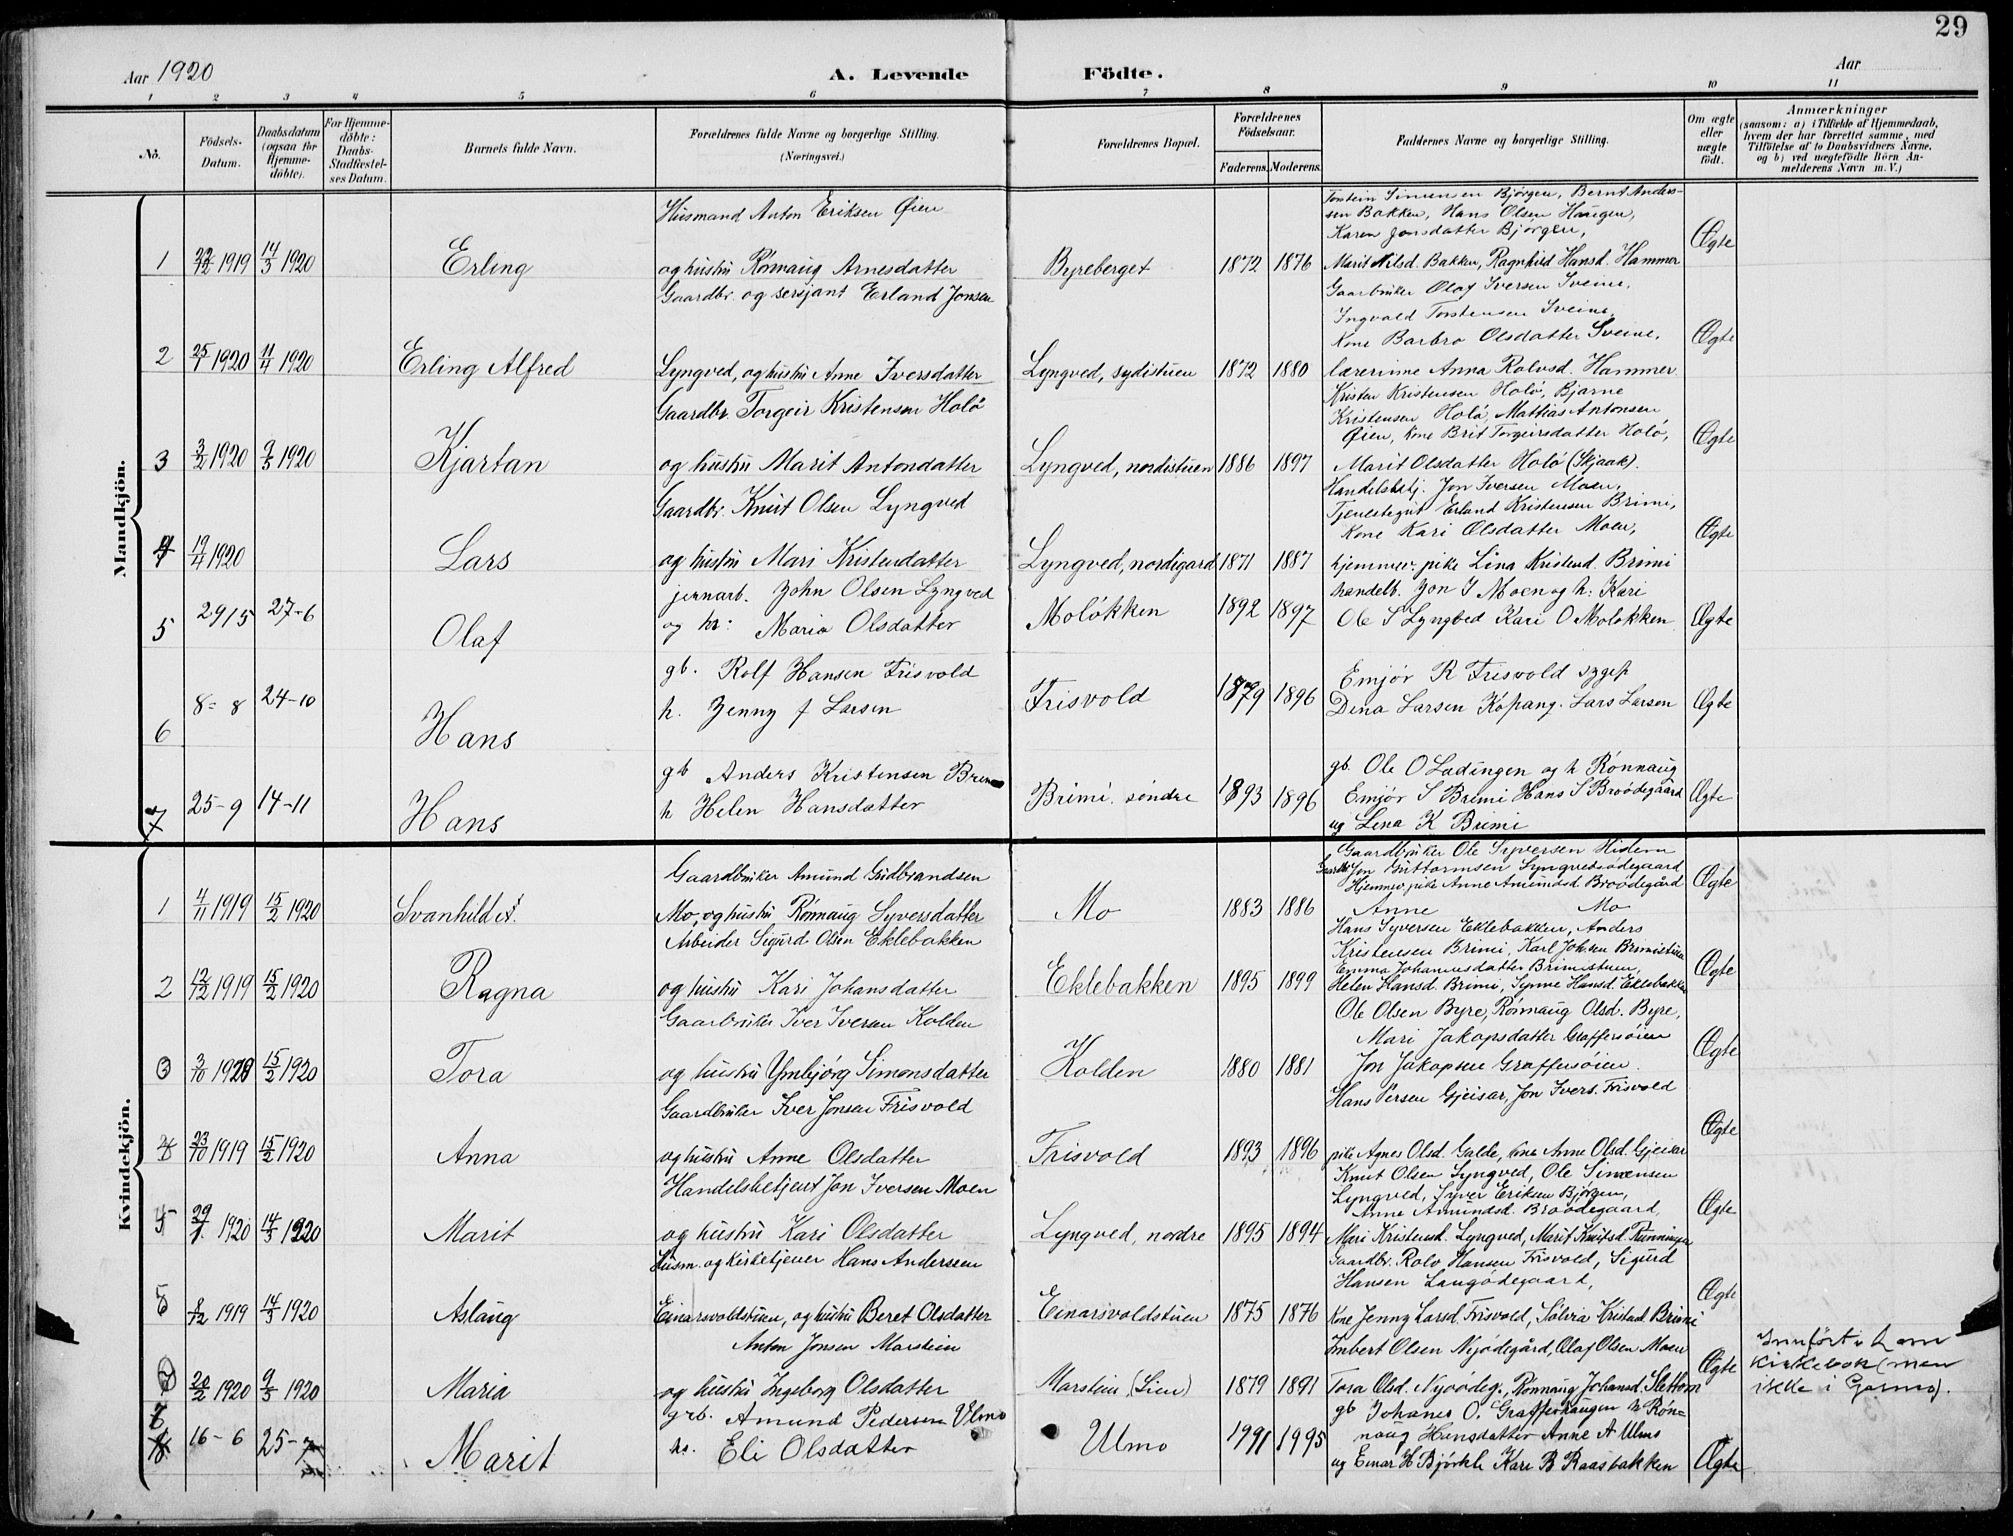 29
Aar 1920
A. Levende Födte.
Aar
1 2 3 4 5 6 7 8 9 10 11
No.
Födsels-Datum.
Daabsdatum (ogsaa for Hjemme-döbte).
For Hjemme-döbte: Daabs-Stadfæstel-ses Datum.
Barnets fulde Navn.
Forældrenes fulde Navne og borgerlige Stilling. (Næringsvei.)
Forældrenes Bopæl.
Forældrenes Födselsaar.
Faderens. Moderens.
Faddernes Navne og borgerlige Stilling.
Om ægte eller uægte födt.
Anmærkninger (saasom: a) i Tilfælde af Hjemmedaab, hvem der har forrettet samme, med Tilföielse af to Daabsvidners Navne, og b) ved uægtefödte Börn An-melderens Navn m. V.)
Mandkjön.
Husmand Anton Eriksen Øien
Torstein Simensen Bjørgen, Bernt Anders-
sen Bakken, Hans Olsen Haugen,
Karen Jonsdatter Bjørgen,
1 22/12 1919 14/3 1920 Erling og hustru Rønnaug Arnesdatter Byreberget 1872 1876 Marit Nilsd. Bakken, Ragnhild Hansd. Hammer Ægte
Gaardbr. og sersjant Erland Jonsen
Gaarbruker Olaf Iversen Sveine,
Ingvald Torstensen Sveine,
Kone Barbro Olsdatter Sveine,
2 25/1 1920 11/4 1920 Erling Alfred Lyngved, og hustru Anne Iversdatter Lyngved, sydistuen 1872 1880 lærerinne Anna Rolvsd. Hammer Ægte
Gaardbr. Torgeir Kristensen Holö
Kristen Kristensen Holö, Bjarne
Kristensen Holö, Mattias Antonsen
Øien, kone Brit Torgeirsdatter Holö,
3 3/2 1920 9/5 1920 Kjartan og hustru Marit Antondatter Lyngved, nordistuen 1886 1897 Marit Olsdatter Holö (Skjaak). Ægte
Gaardbr. Knut Olsen Lyngved
Handelsbetj. Jon Iversen Moen,
Tjenestegut Erland Kristensen Brimi,
Kone Kari Olsdatter Moen,
4 19/4 1920 Lars og hustru Mari Kristendatter Lyngved, nordigard 1871 1887 hjemmev. pike Lina Kristensd. Brimi Ægte
jernarb. John Olsen Lyngved
handelb. Jon I Moen og h. Kari
5 29/5 27-6 Olaf og hr: Maria Olsdatter Molökken 1892 1897 Ole S Lyngved Kari O Molökken Ægte
gb. Rolf Hansen Frisvold
Emjør R Frisvold sygep
6 8-8 24-10 Hans h. Jenny J Larsen Frisvold 1879 1896 Dina Larsen Kópang. Lars Larsen Ægte
gb Anders Kristensen Brimi
gb. Ole O Ladingen og h Rönnaug
7 25-9 14-11 Hans h Helen Hansdatter Brimi. söndre 1893 1896 Emjør S Brimi Hans S Broödegaard Ægte
og Lina K Brimi
Kvindekjön.
Gaardbruker Amund Gudbrandsen
Gaardbruker Ole Syversen Hidem
Gaardbr. Jon Guttormsen Lyngvedsödegaard
Hjemmev. pike Anne Amundsd. Broödegård
1 4/11 1919 15/2 1920 Svanhild A. Mo, og hustru Rønnaug Syversdatter Mo 1883 1886 Anne Mo Ægte
Arbeider Sigurd Olsen Eklebakken
Hans Syversen Eklebakken, Anders
Kristensen Brimi, Karl Johsen Brimistuen
Emma Johannesdatter Brimistuen,
2 12/12 1919 15/2 1920 Ragna og hustru Kari Johansdatter Eklebakken 1895 1899 Helen Hansd. Brimi, Synne Hansd. Eklebakken Ægte
Gaarbruker Iver Iversen Kolden
Ole Olsen Byre, Rønnaug Olsd. Byre,
Mari Jakopsdatter Graffersøien
3 3/10 1920 15/2 1920 Tora og hustru Ymbjørg Simonsdatter Kolden 1880 1881 Jon Jakopsen Graffersøien. Ægte
Gaardbruker Iver Jonsen Frisvold
Hans Persen Gjeisar, Jon Ivers. Frisvold
4 23/10 1919 15/2 1920 Anna og hustru Anne Olsdatter Frisvold 1893 1896 pike Agnes Olsd. Galde, kone Anne Olsd. Gjeisar Ægte
Handelsbetjent Jon Iversen Moen
Knut Olsen Lyngved, Ole Simensen
Lyngved, Syver Eriksen Bjørgen,
Anne Amundsd. Broödegaard,
5 29/1 1920 14/3 1920 Marit og hustru Kari Olsdatter Lyngved, nordre 1895 1894 Mari Kristensd. Lyngved, Marit Knutsd. Runningen Ægte
Husm. og kirketjener Hans Anderssen
Gaardbr. Rolv Hansen Frisvold, Sigurd
Hansen Laugödegaard,
8/12 1919 14/3 1920 Aslaug Einarsvoldstuen, og hustru Beret Olsdatter Einarsvoldstuen 1875 1876 Kone Jenny Larsd. Frisvold, Solvia Kristensd. Brimi Ægte
Anton Jonsen Marstein
Imbert Olsen Nyödegård, Olaf Olsen Moen
Innført i Lom
kirkebok (men
ikke i Garmo).
7 20/2 1920 9/5 1920 Maria og hustru Ingeborg Olsdatter Marstein (Lien) 1879 1891 Tora Olsd. Nyödeg., Rønnaug Johansd. Slettom Ægte
grb. Amund Pedersen Ulmo
gb Johanes O. Graffershaugen h Røn-
naug Hansdatter Anne A Ulmo
8 16-6 25-7 Marit hs. Eli Olsdatter Ulmo 1991 1995 og Einar H Bjørkle Kari B Raasbakken Ægte